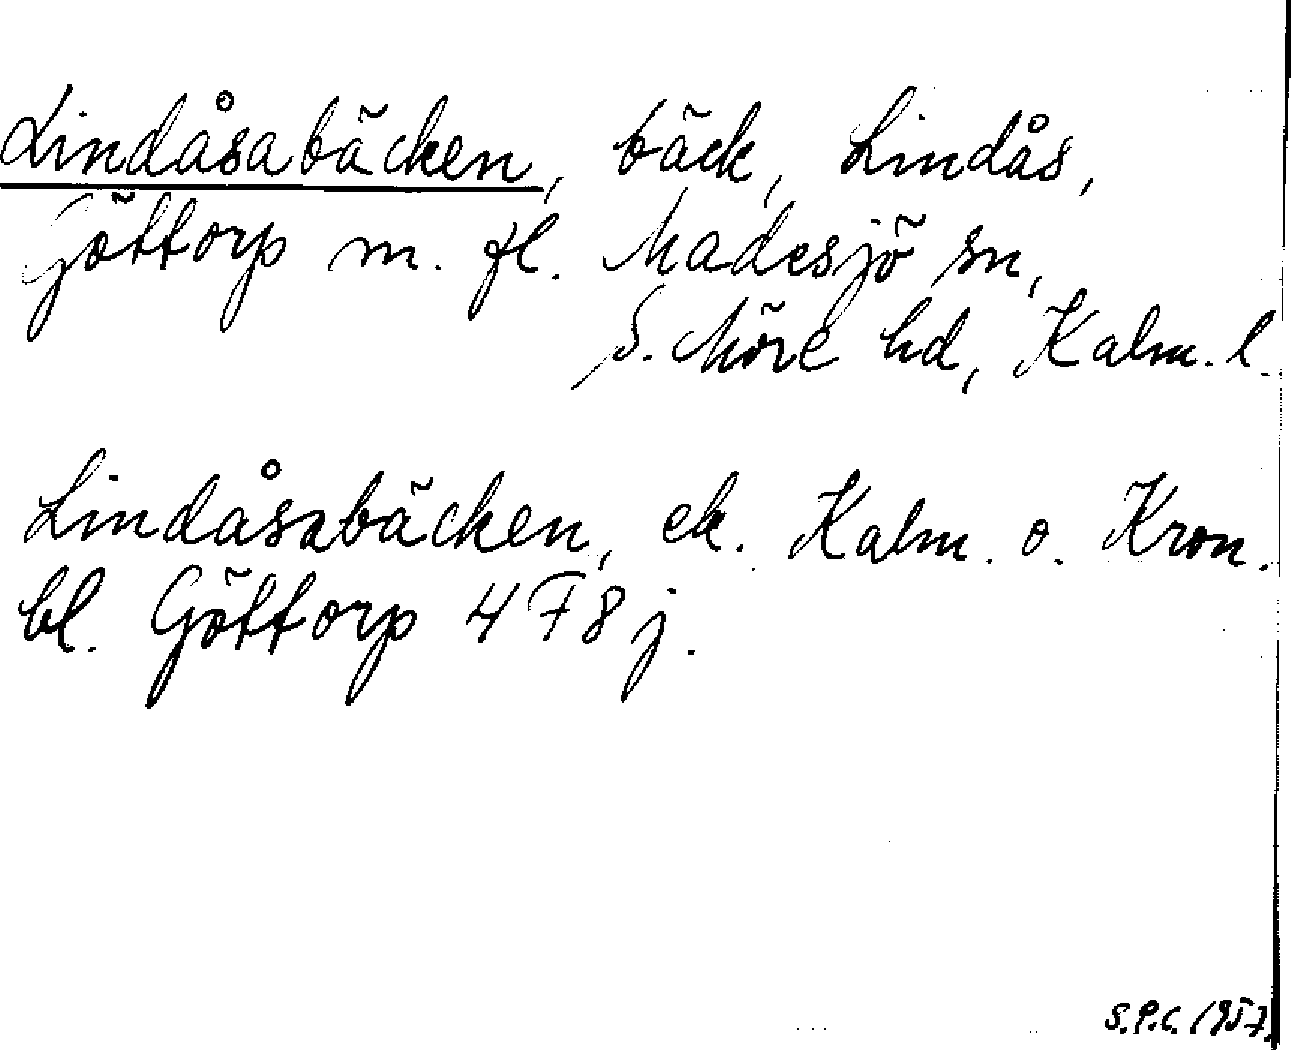 Lindåsabäcken, bäck, Lindås,
Göttorp m. fl. Madesjö sn,
S. Möre hd, Kalm. l.
Lindåsabäcken, ek. Kalm. o. Kron.
bl. Göttorp 4 F 8 j.
S.P.C. 1957.